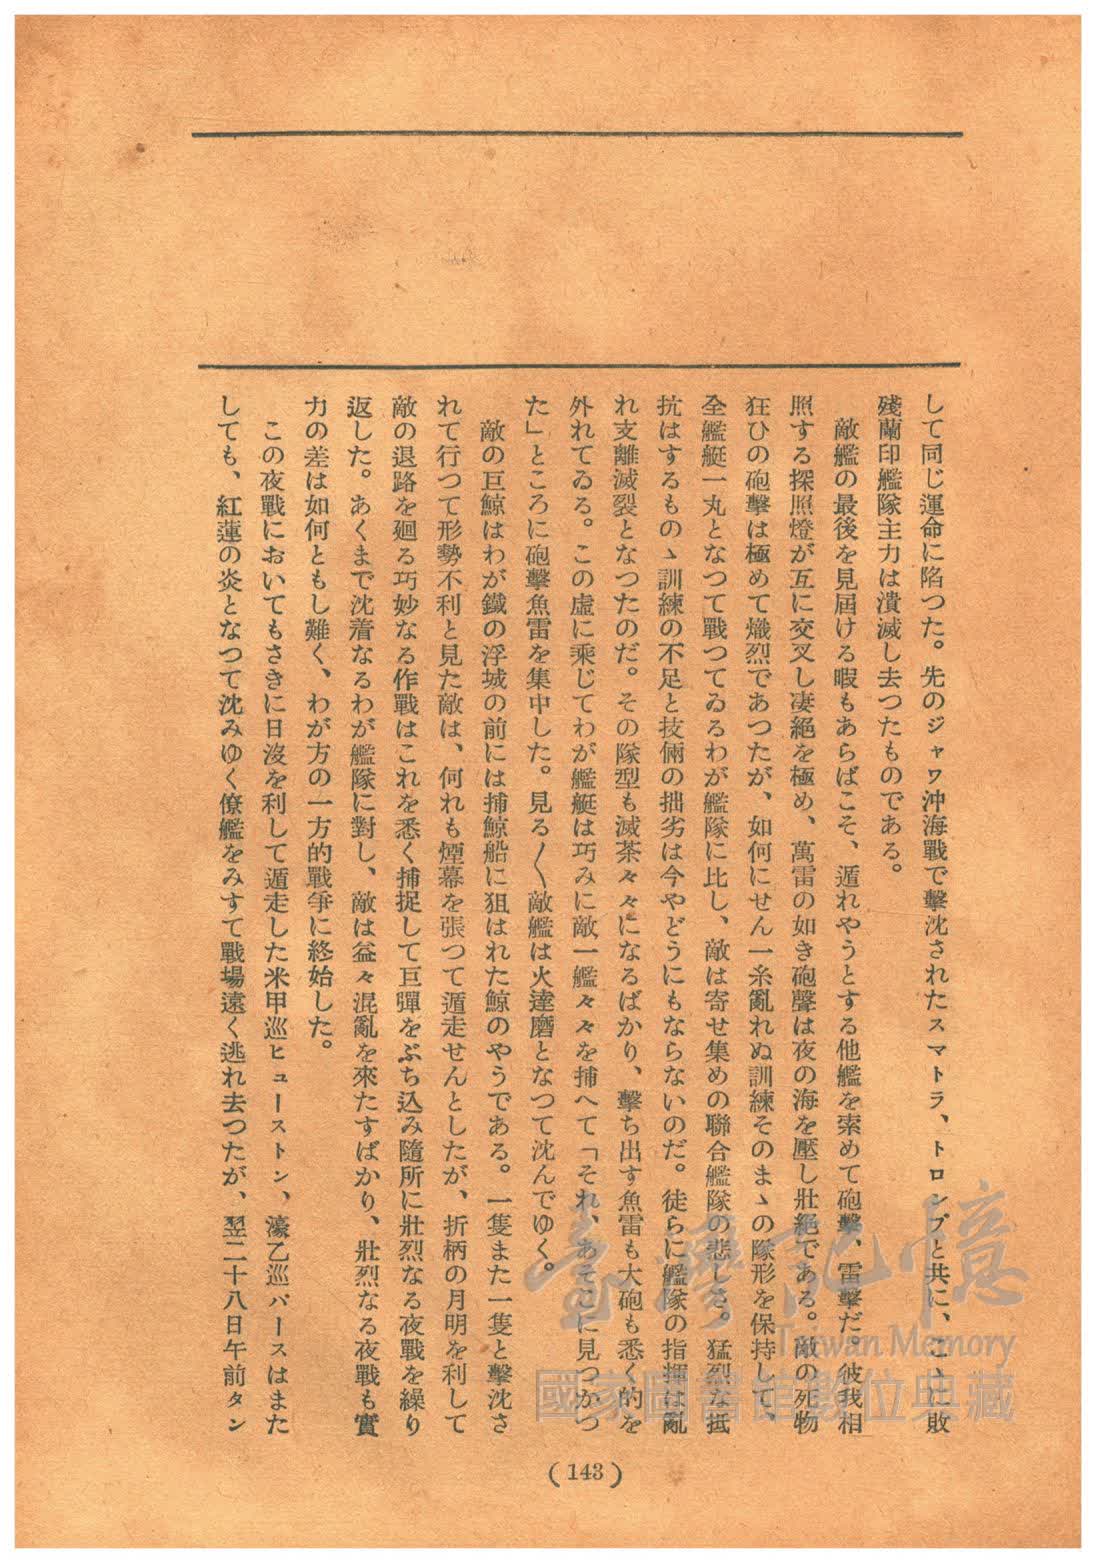 して同じ運命に陷つた。先のジャワ沖海戰で擊沈されたスマトラ、トロンプと共に、こゝに敗
殘蘭印艦隊主力は潰滅し去つたものである。
敵艦の最後を見屆ける暇もあらばこそ、遁れやうとする他艦を索めて砲擊、雷擊だ。彼我相
照する探照燈が互に交叉し凄絕を極め、萬雷の如き砲聲は夜の海を壓し壯絕である。敵の死物
狂ひの砲擊は極めて熾烈であつたが、如何にせん一糸亂れぬ訓練そのまゝの隊形を保持して、
全艦艇一丸となつて戰つてゐるわが艦隊に比し、敵は寄せ集めの聯合艦隊の悲しさ。猛烈な抵
抗はするものゝ訓練の不足と技倆の拙劣は今やどうにもならないのだ。徒らに艦隊の指揮は亂
れ支離滅裂となつたのだ。その隊型も滅茶々々になるばかり、擊ち出す魚雷も大砲も悉く的を
外れてゐる。この虛に乘じてわが艦艇は巧みに敵一艦々々を捕へて「それ、あそこに見つかつ
た」ところに砲擊魚雷を集中した。見る〱敵艦は火達磨となつて沈んでゆく。
敵の巨鯨はわが鐵の浮城の前には捕鯨船に狙はれた鯨のやうである。一隻また一隻と擊沈さ
れて行つて形勢不利と見た敵は、何れも煙幕を張つて遁走せんとしたが、折柄の月明を利して
敵の退路を廻る巧妙なる作戰はこれを悉く捕捉して巨彈をぶち込み隨所に壯烈なる夜戰を繰り
返した。あくまで沈着なるわが艦隊に對し、敵は益々混亂を來たすばかり、壯烈なる夜戰も實
力の差は如何ともし難く、わが方の一方的戰爭に終始した。
この夜戰においてもさきに日沒を利して遁走した米甲巡ヒューストン、濠乙巡パースはまた
しても、紅蓮の炎となつて沈みゆく僚艦をみすて戰場遠く逃れ去つたが、翌二十八日午前タン
(143)
臺灣記憶
Taiwan Memory
國家圖書館數位典藏